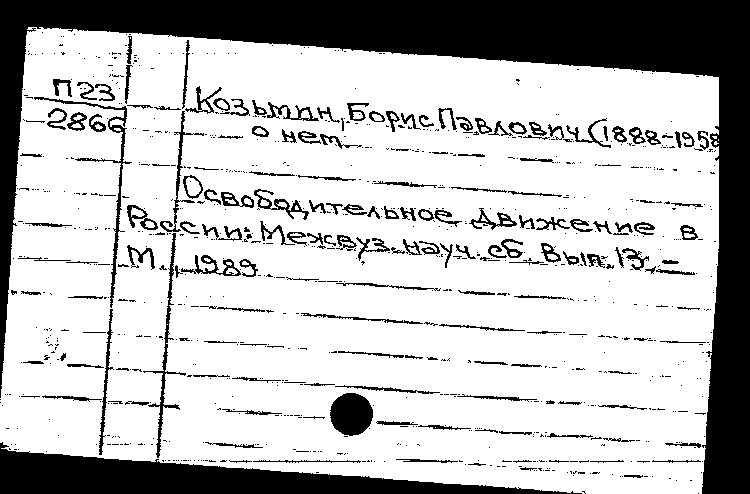 П23
2866
Козьмин, Борис Павлович (1888-1958)
о нем.
Освободительное движение в
России: Межвуз. науч. сб. Вып. 13. –
М., 1989